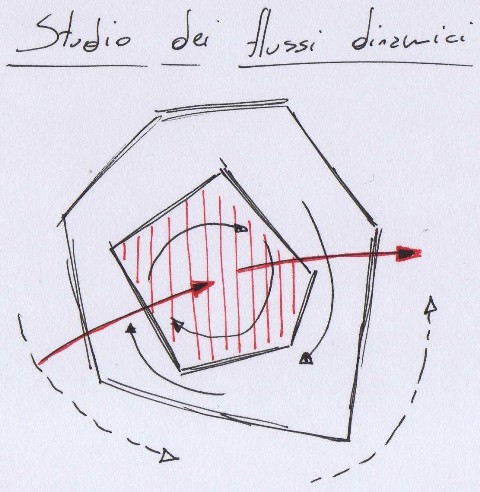 Studio dei flussi dinamici